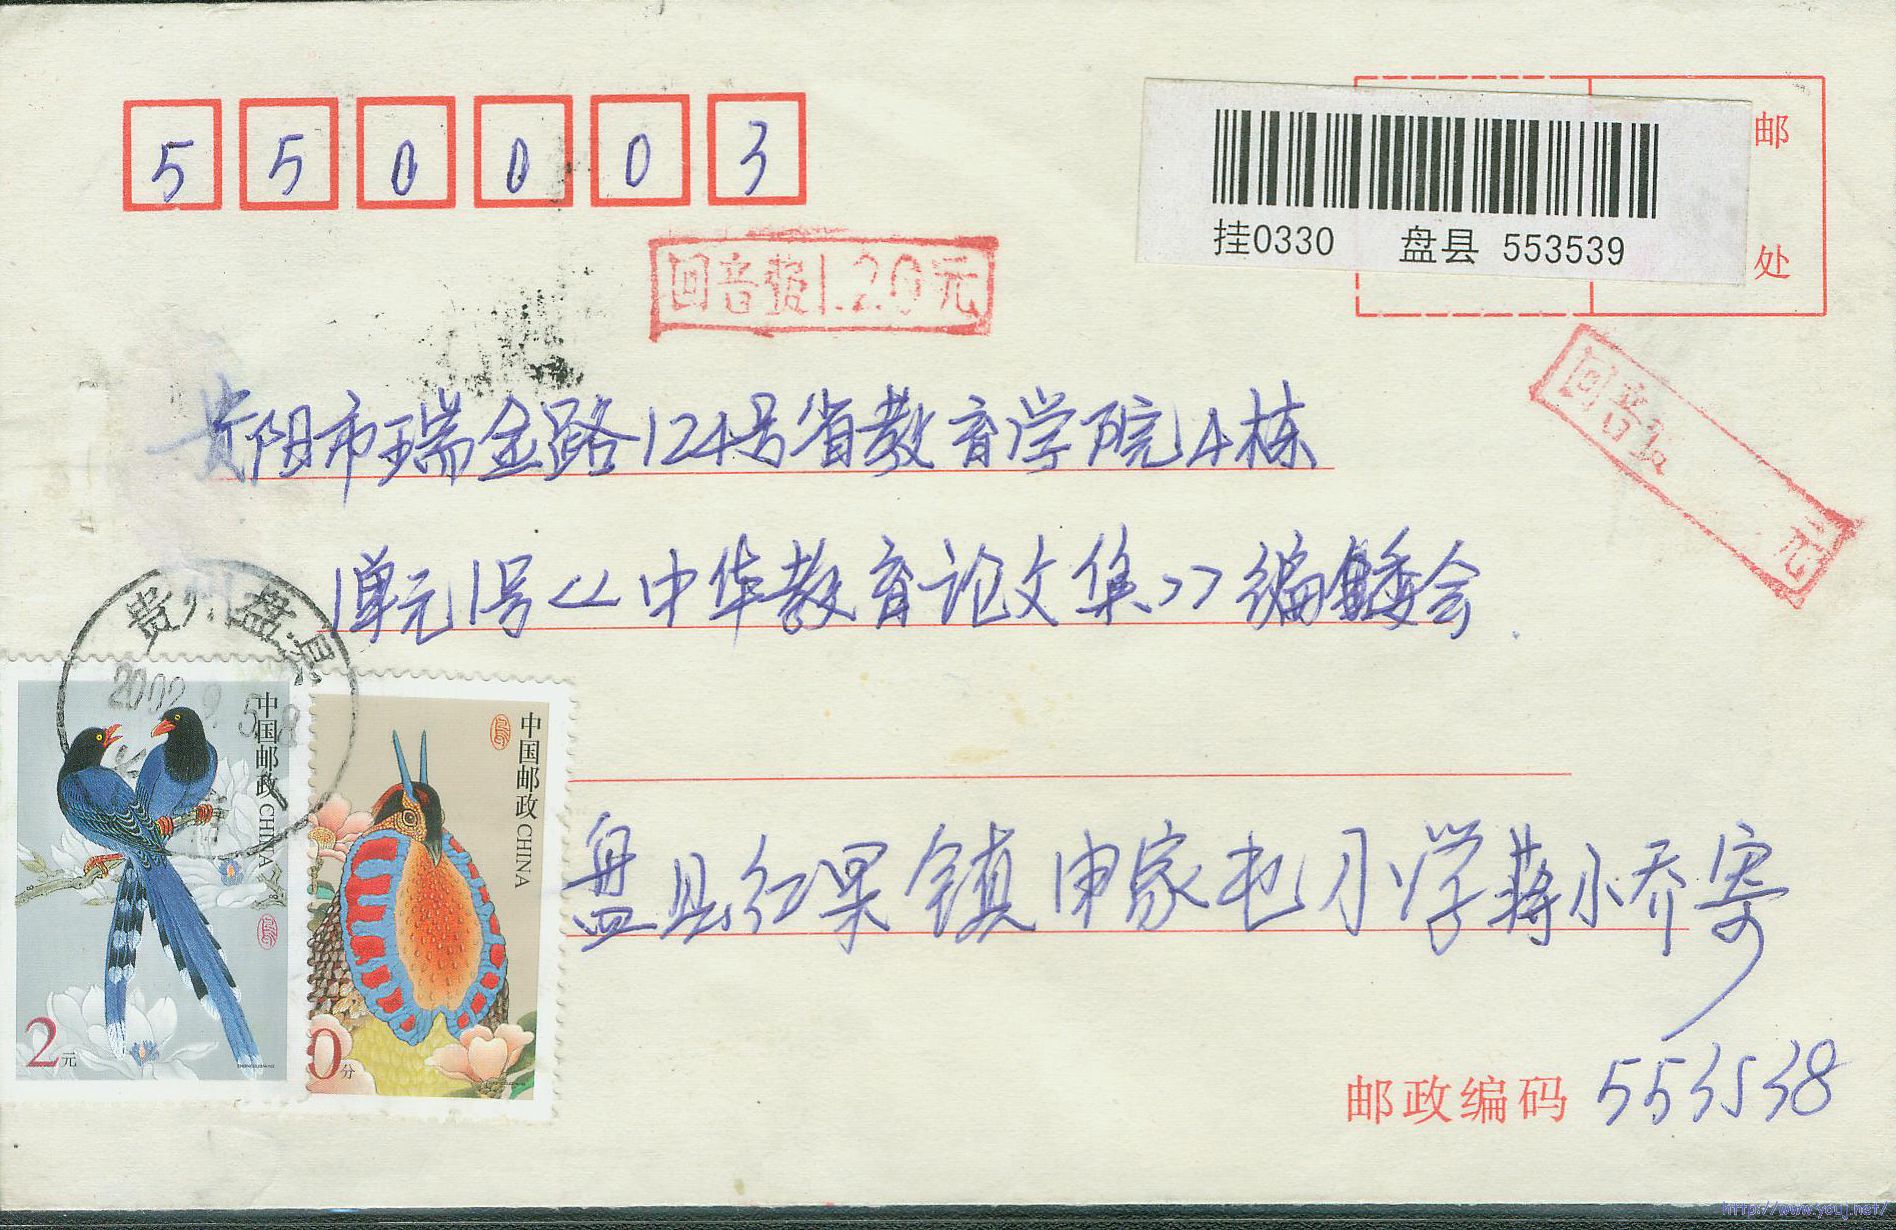 550003
邮
挂0330 盘县 553539
处
回音费1.20元
回音费 元
贵阳市瑞金路124号省教育学院4栋
1单元1号《中华教育论文集》编委会
贵州盘县
2002.9.5.8
中国邮政 CHINA
2元
中国邮政 CHINA
0分
盘县红果镇申家屯小学蒋小乔寄
邮政编码 553538
http://www.youj.net/